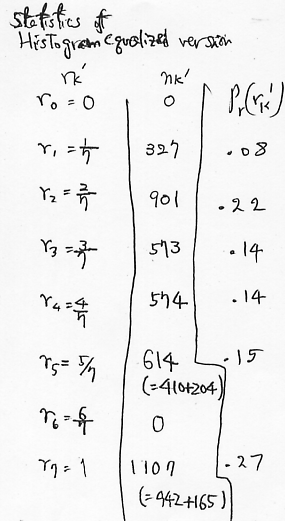 Statistics of
Histogram equalized version
rk' nk' Pr(rk')
r0 = 0 0
r1 = 1/7 327 .08
r2 = 2/7 901 .22
r3 = 3/7 573 .14
r4 = 4/7 574 .14
r5 = 5/7 614 .15
(=410+204)
r6 = 6/7 0
r7 = 1 1107 .27
(=942+165)